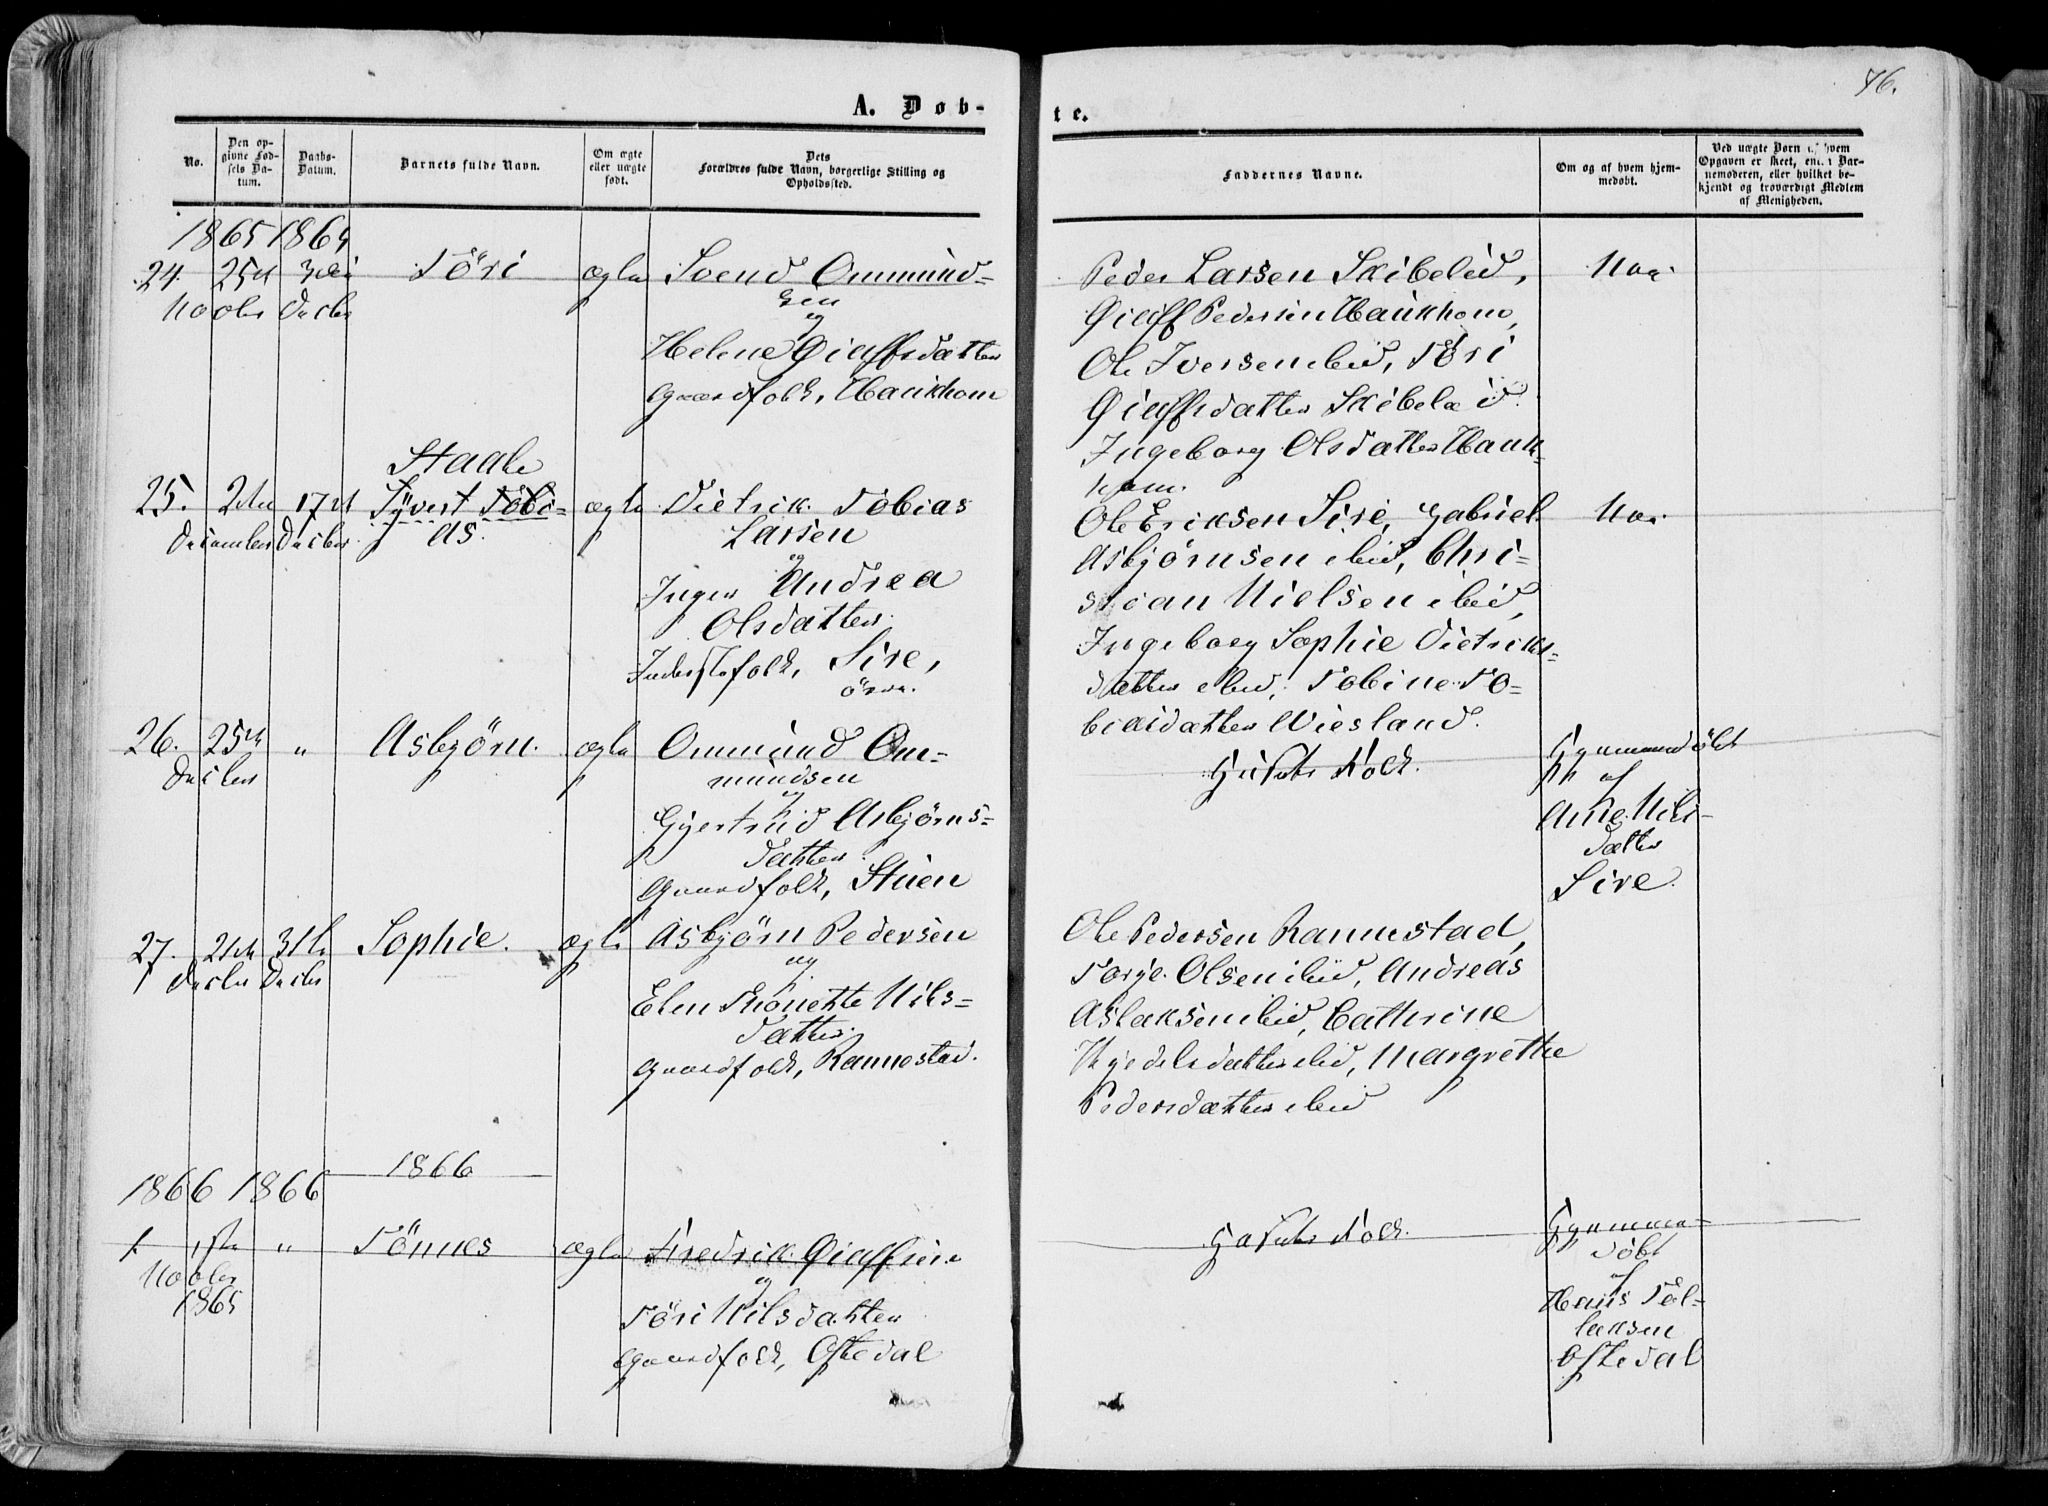 76.
A. Døb-
te.
No.
Den op-
givne Fød-
sels Da-
tum.
Daabs-
Datum.
Barnets fulde Navn.
Om ægte
eller uægte
født.
Dets
Forældres fulde Navn, borgerlige Stilling og
Opholdssted.
Faddernes Navne.
Om og af hvem hjem-
medøbt.
Ved uægte Børn af hvem
Opgaven er skeet, enten Bar-
nemoderen, eller hvilket be-
kjendt og troværdigt Medlem
af Menigheden.
1865 1865
24. 25de Novbr 3die Decbr Töri ægte Svend Ommund-
sen
og
Helene Øiaffsdatter
Gaardfolk, Haukhom
Peder Larsen Skibeled,
Øiaff Pedersen Haukhom,
Ole Iversen ibid, Töri
Øiaffsdatter Skibeled.
Ingeborg Olsdatter Hauk-
hom.
Nei.
25. 2den December 17de Decbr.
Staale
Syvert Tobi-
as.
ægte
Dietrik Tobias
Larsen
og
Inger Andrea
Olsdatter.
Inderstfolk, Sire,
övre.
Ole Eriksen Sire, Gabriel
Asbjørnsen ibid, Chri-
stian Nielsen ibid,
Ingeborg Sophie Dietriks-
datter ibid, Tobine To-
biasdatter Wiesland.
Nei.
26. 25de Decbr " Asbjörn. ægte Ommund Om-
mundsen
og
Gjertrud Asbjörns-
datter.
Gaardfolk, Stuen
Hjemmedöbt
af
Ane Nils-
datter
Sire.
27. 21de Decbr 31te Decbr Sophie. ægte Asbjörn Pedersen
og
Elen Thonette Nils-
datter.
Gaardfolk, Rannestad.
Ole Pedersen Rannestad,
Torje Olsen ibid, Andreas
Aslaksen ibid, Cathrine
Kjedelsdatter ibid, Margrethe
Pedersdatter ibid
1866
1866 1866
1. 1ste Novbr 1865 " Tönnes ægte Fredrik Øiaffsen
og
Töri Nilsdatter
Gaardfolk, Oftedal
Hjemme-
döbt
af
Hans Tol-
laksen
Oftedal